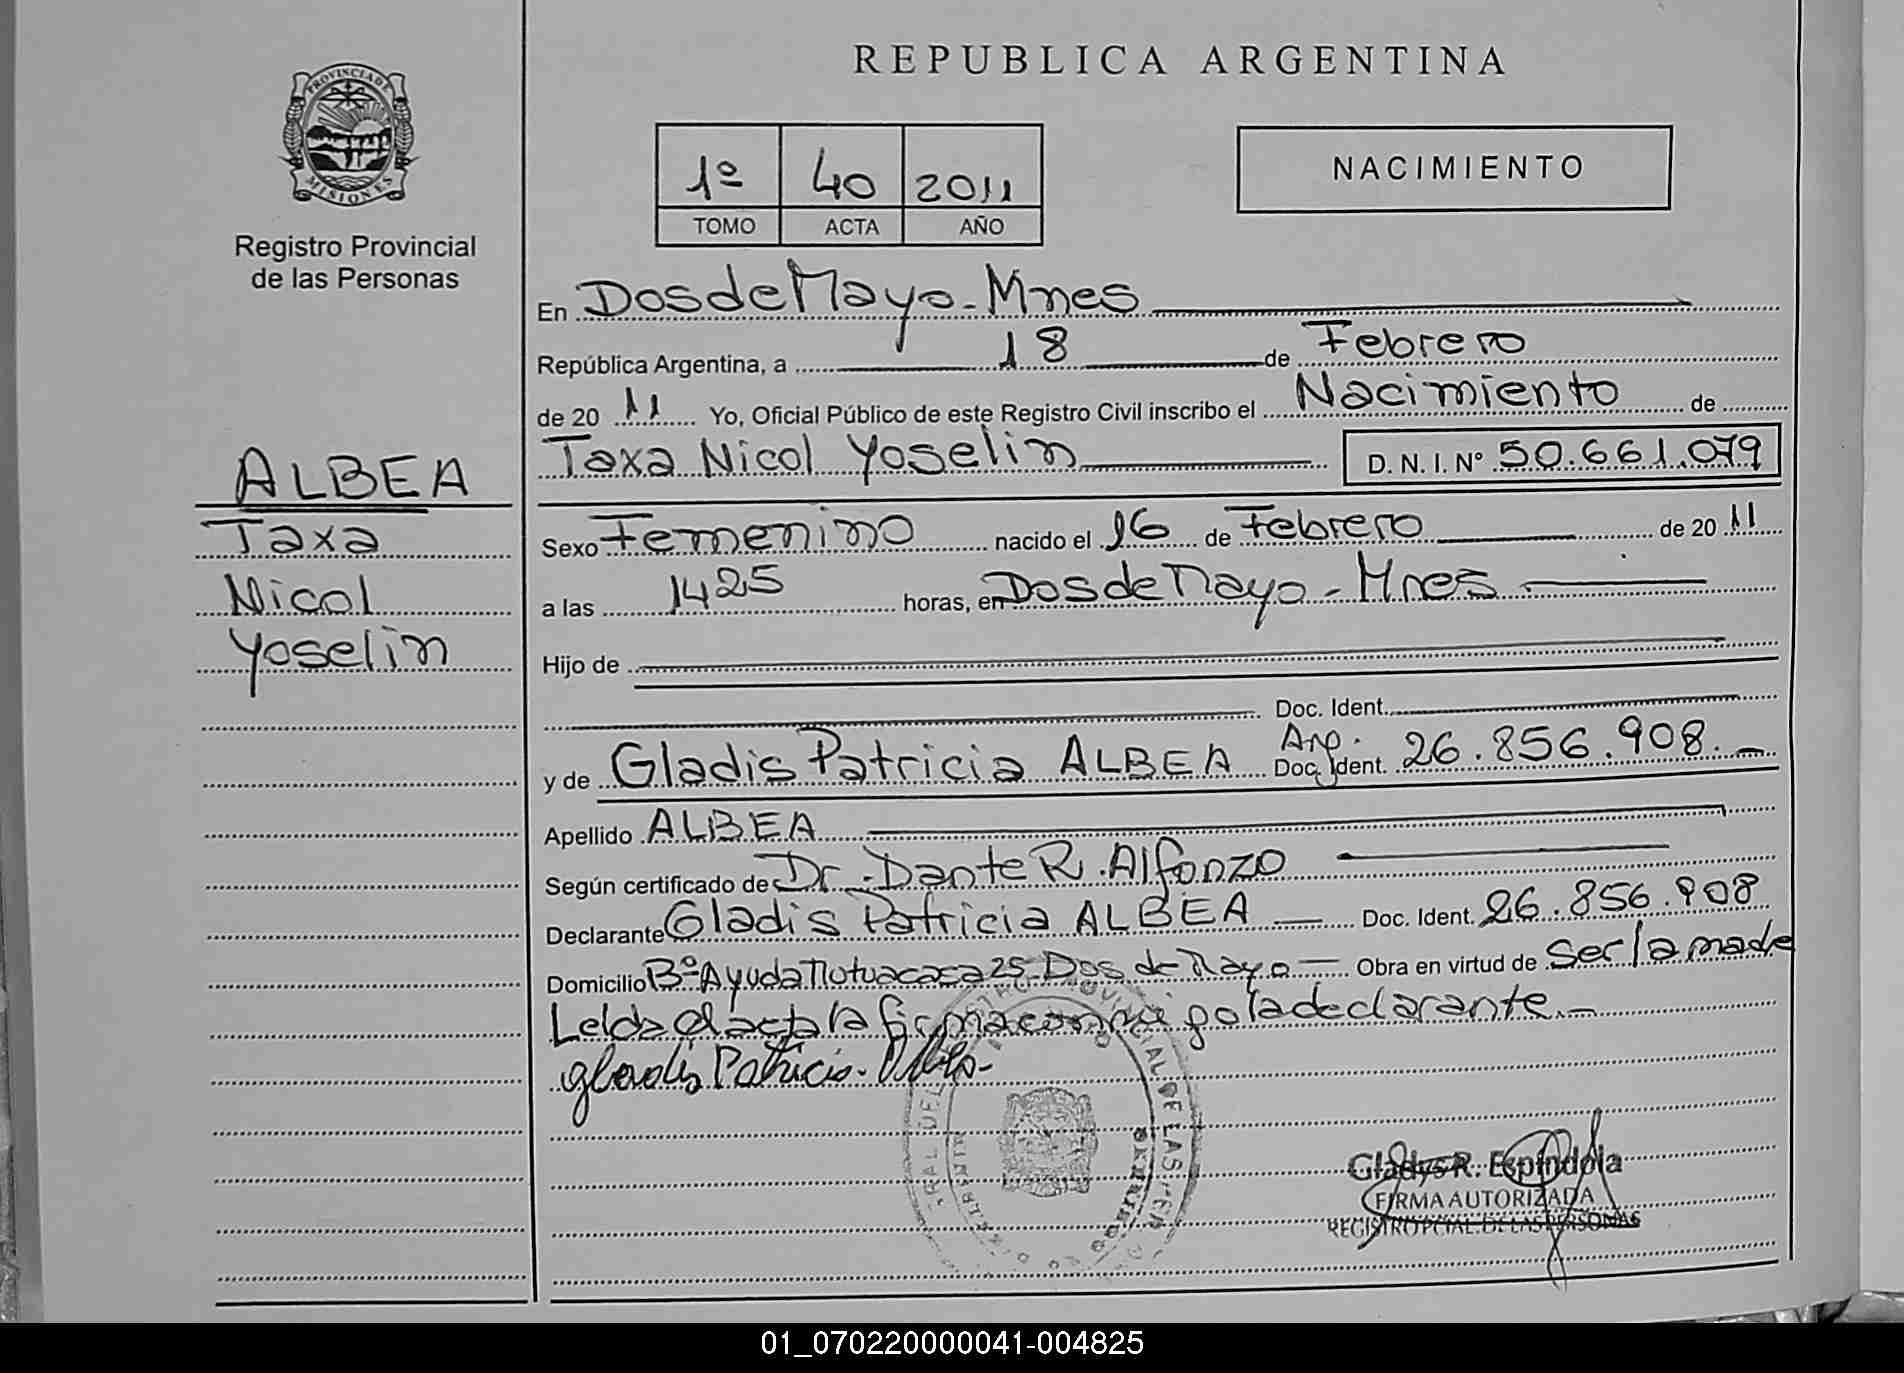 REPUBLICA ARGENTINA
PROVINCIA DE MISIONES
Registro Provincial
de las Personas
1º 40 2011
TOMO ACTA AÑO
NACIMIENTO
ALBEA
Taxa
Nicol
Yoselin
En Dos de Mayo - Mnes
República Argentina, a 18 de Febrero
de 20 11 Yo, Oficial Público de este Registro Civil inscribo el Nacimiento de
Taxa Nicol Yoselin D. N. I. Nº 50.661.079
Sexo Femenino nacido el 16 de Febrero de 20 11
a las 1425 horas, en Dos de Mayo - Mnes
Hijo de
Doc. Ident.
y de Gladis Patricia ALBEA Arg. Doc. Ident. 26.856.908.
Apellido ALBEA
Según certificado de Dr. Dante R. Alfonzo
Declarante Gladis Patricia ALBEA Doc. Ident. 26.856.908
Domicilio Bº Ayuda Mutua casa 25 Dos de Mayo Obra en virtud de Ser la madre
Leida el acta la firma conmigo la declarante.
Gladis Patricia
Gladys R. Espindola
FIRMA AUTORIZADA
REGISTRO PCIAL. DE LAS PERSONAS
01_070220000041-004825